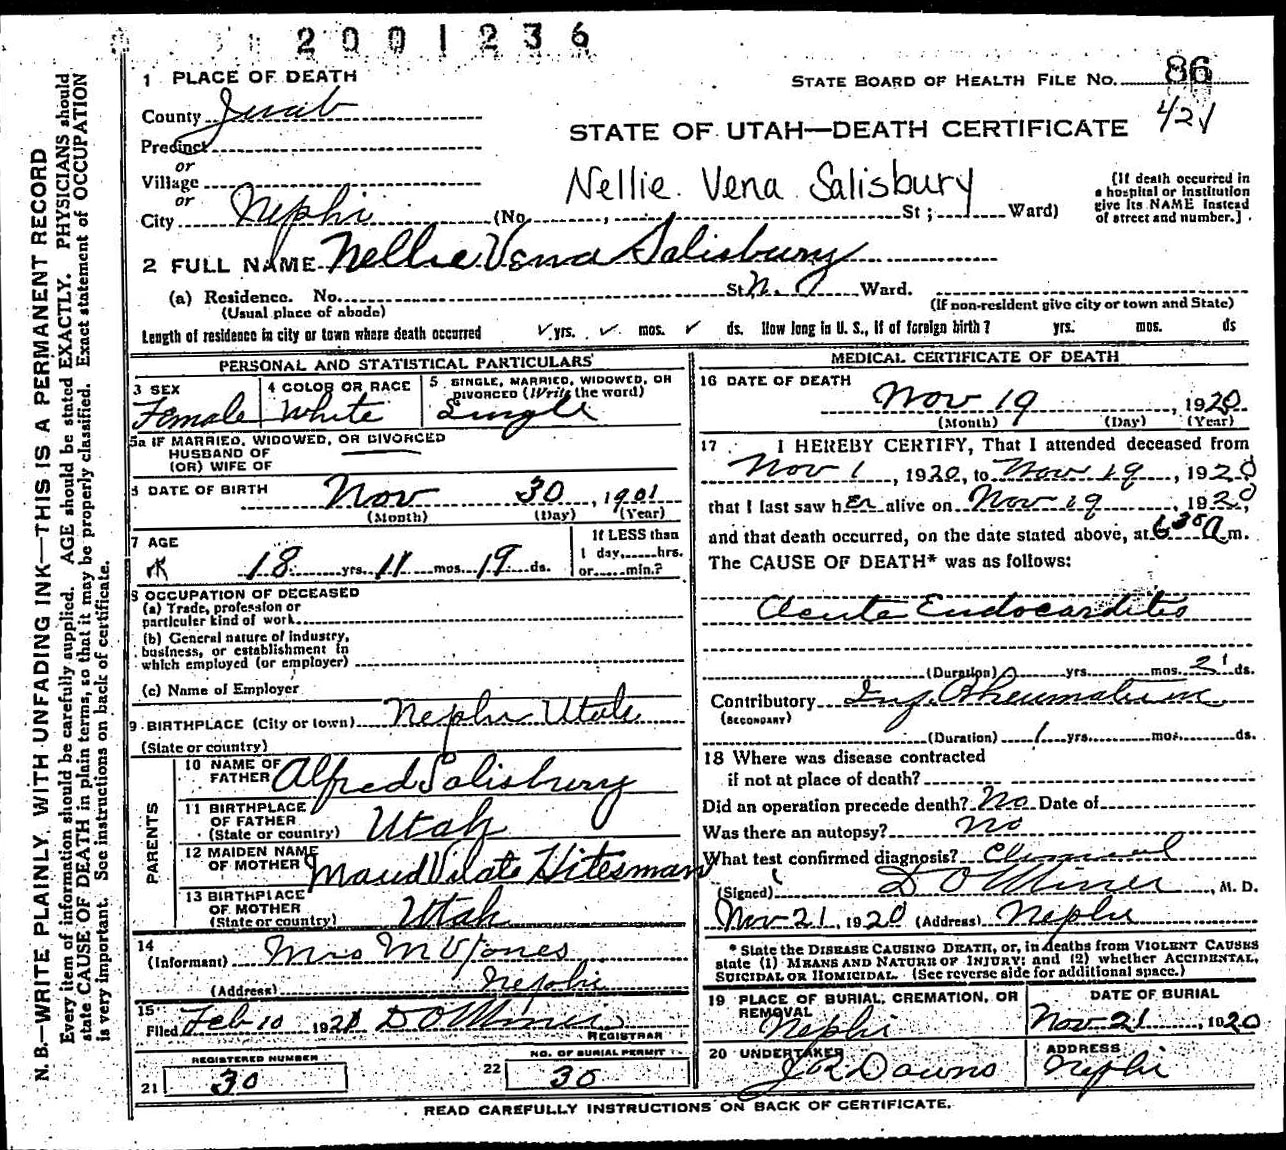 2001236
1 PLACE OF DEATH
STATE BOARD OF HEALTH FILE NO. 86
County Juab
421
STATE OF UTAH—DEATH CERTIFICATE
Precinct
or
Village
Nellie Vena Salisbury
(If death occurred in a hospital or institution give its NAME instead of street and number.)
or
City Nephi (No. , St; Ward)
2 FULL NAME Nellie Vena Salisbury
(a) Residence. No. St. Ward.
(Usual place of abode) (If non-resident give city or town and State)
Length of residence in city or town where death occurred ✓ yrs. ✓ mos. ✓ ds. How long in U. S., if of foreign birth? yrs. mos. ds
PERSONAL AND STATISTICAL PARTICULARS
3 SEX
Female
4 COLOR OR RACE
White
5 SINGLE, MARRIED, WIDOWED, OR DIVORCED (Write the word)
Single
5a IF MARRIED, WIDOWED, OR DIVORCED
HUSBAND OF
(OR) WIFE OF
DATE OF BIRTH Nov 30, 1901
(Month) (Day) (Year)
7 AGE
18 yrs. 11 mos. 19 ds.
If LESS than
1 day, hrs.
or min.?
8 OCCUPATION OF DECEASED
(a) Trade, profession or
particuler kind of work
(b) General nature of industry,
business, or establishment in
which employed (or employer)
(c) Name of Employer
9 BIRTHPLACE (City or town) Nephi Utah
(State or country)
PARENTS
10 NAME OF FATHER Alfred Salisbury
11 BIRTHPLACE OF FATHER
(State or country) Utah
12 MAIDEN NAME OF MOTHER Maud Vilate Hitesman
13 BIRTHPLACE OF MOTHER
(State or country) Utah
14
(Informant) Mrs M V Jones
(Address) Nephi
15
Filed Feb 10 1921 D O Miner
REGISTRAR
REGISTERED NUMBER
21 30
NO. OF BURIAL PERMIT
22 30
MEDICAL CERTIFICATE OF DEATH
16 DATE OF DEATH
Nov 19, 1920
(Month) (Day) (Year)
17 I HEREBY CERTIFY, That I attended deceased from
Nov 1, 1920, to Nov 19, 1920
that I last saw her alive on Nov 19, 1920,
and that death occurred, on the date stated above, at 6 30 a m.
The CAUSE OF DEATH* was as follows:
Acute Endocarditis
(Duration) yrs. mos. 21 ds.
Contributory Inf. Rheumatism
(SECONDARY)
(Duration) 1 yrs. mos. ds.
18 Where was disease contracted
if not at place of death?
Did an operation precede death? No Date of
Was there an autopsy? No
What test confirmed diagnosis? Clinical
(Signed) D O Miner, M. D.
Nov 21, 1920 (Address) Nephi
* State the DISEASE CAUSING DEATH, or, in deaths from VIOLENT CAUSES
state (1) MEANS AND NATURE OF INJURY; and (2) whether ACCIDENTAL,
SUICIDAL or HOMICIDAL. (See reverse side for additional space.)
19 PLACE OF BURIAL, CREMATION, OR REMOVAL
Nephi
DATE OF BURIAL
Nov 21, 1920
20 UNDERTAKER
Downs
ADDRESS
Nephi
READ CAREFULLY INSTRUCTIONS ON BACK OF CERTIFICATE.
N. B.—WRITE PLAINLY, WITH UNFADING INK—THIS IS A PERMANENT RECORD
Every item of information should be carefully supplied. AGE should be stated EXACTLY. PHYSICIANS should
state CAUSE OF DEATH in plain terms, so that it may be properly classified. Exact statement of OCCUPATION
is very important. See instructions on back of certificate.